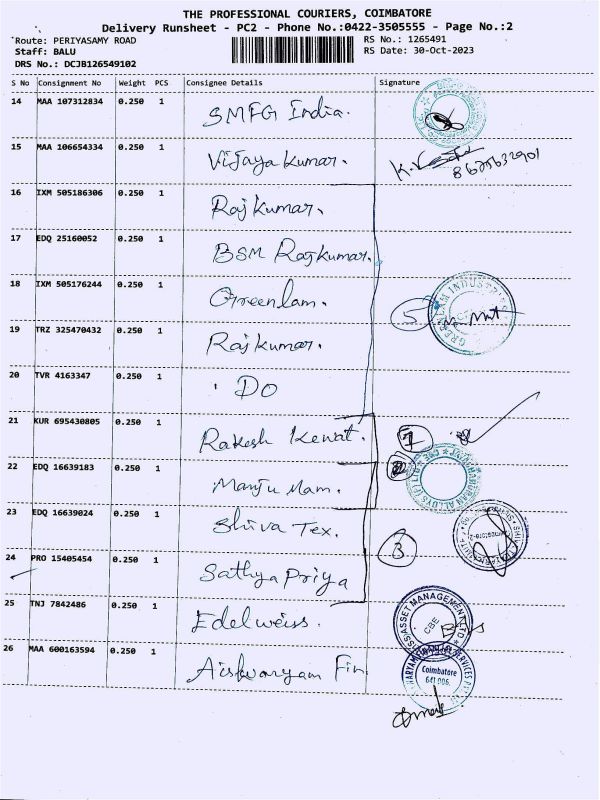 THE PROFESSIONAL COURIERS, COIMBATORE
Delivery Runsheet - PC2 - Phone No.:0422-3505555 - Page No.:2
Route: PERIYASAMY ROAD RS No.: 1265491
Staff: BALU RS Date: 30-Oct-2023
DRS No.: DCJB126549102
S No Consignment No Weight PCS Consignee Details Signature
14 MAA 107312834 0.250 1 SMFG India.
15 MAA 106654334 0.250 1 Vijaya Kumar. K. 8675632901
16 IXM 505186306 0.250 1 Rajkumar.
17 EDQ 25160052 0.250 1 BSM Rajkumar.
18 IXM 505176244 0.250 1 Greenlam. 5 GREENLAM INDUSTRIES
19 TRZ 325470432 0.250 1 Rajkumar.
20 TVR 4163347 0.250 1 Do
21 KUR 695430805 0.250 1 Rakesh Kewat. 1
22 EDQ 16639183 0.250 1 Manju Mam. 2 ALLOYS (P) LTD
23 EDQ 16639024 0.250 1 Shiva Tex.
24 PRO 15405454 0.250 1 Sathya Priya 3
25 TNJ 7842486 0.250 1 Edelweiss. ASSET MANAGEMENT LTD CBE
26 MAA 600163594 0.250 1 Aishwaryam Fin SERVICES
Coimbatore
641 006.